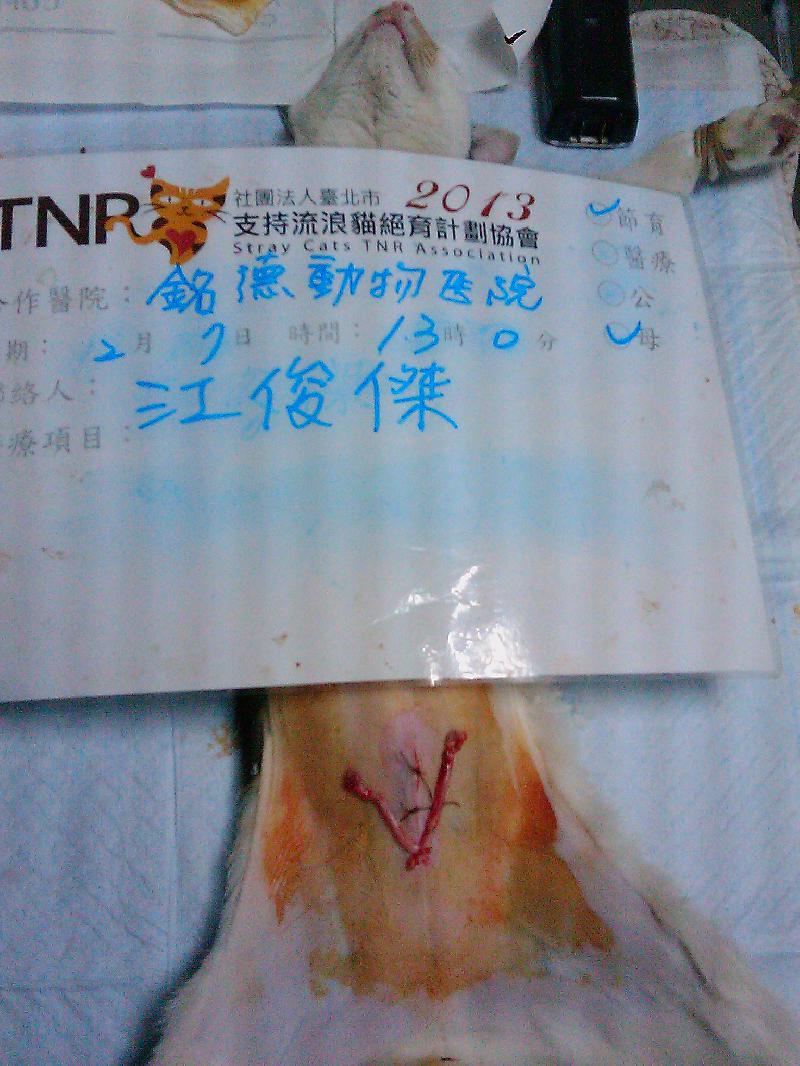 TNR 社團法人臺北市 2013
支持流浪貓絕育計劃協會
Stray Cats TNR Association
作醫院：銘德動物医院
期：2月7日 時間：13時0分
絡人：江俊傑
療項目：
✓節育
醫療
公
✓母